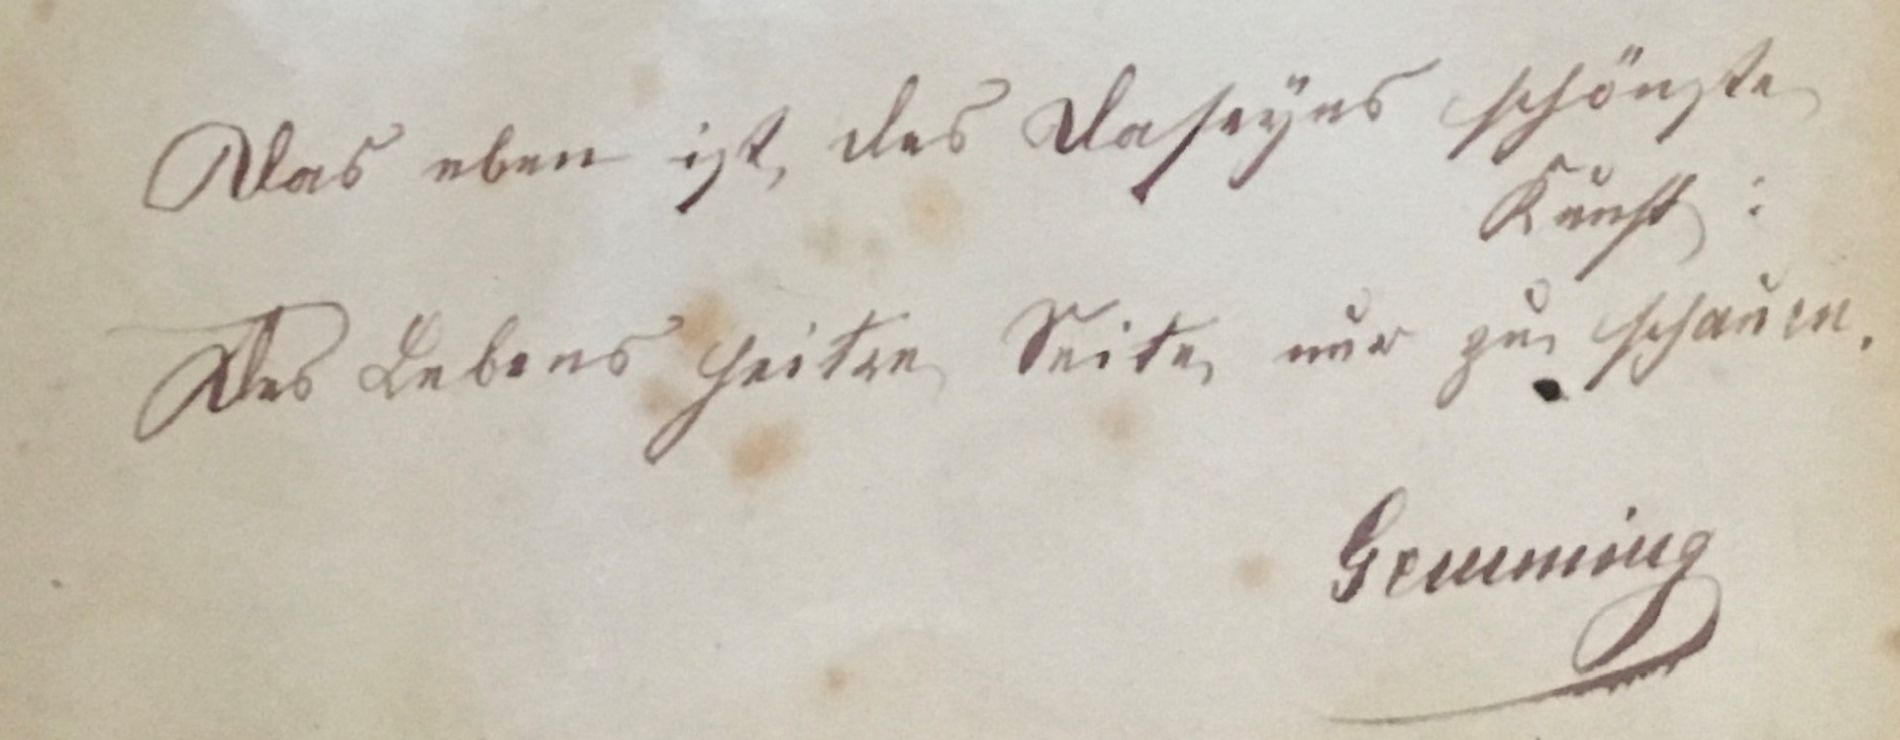 Das eben ist, des Daseyns schönste
Kunst :
Des Lebens heitre Seite nur zu schauen.
Gemming